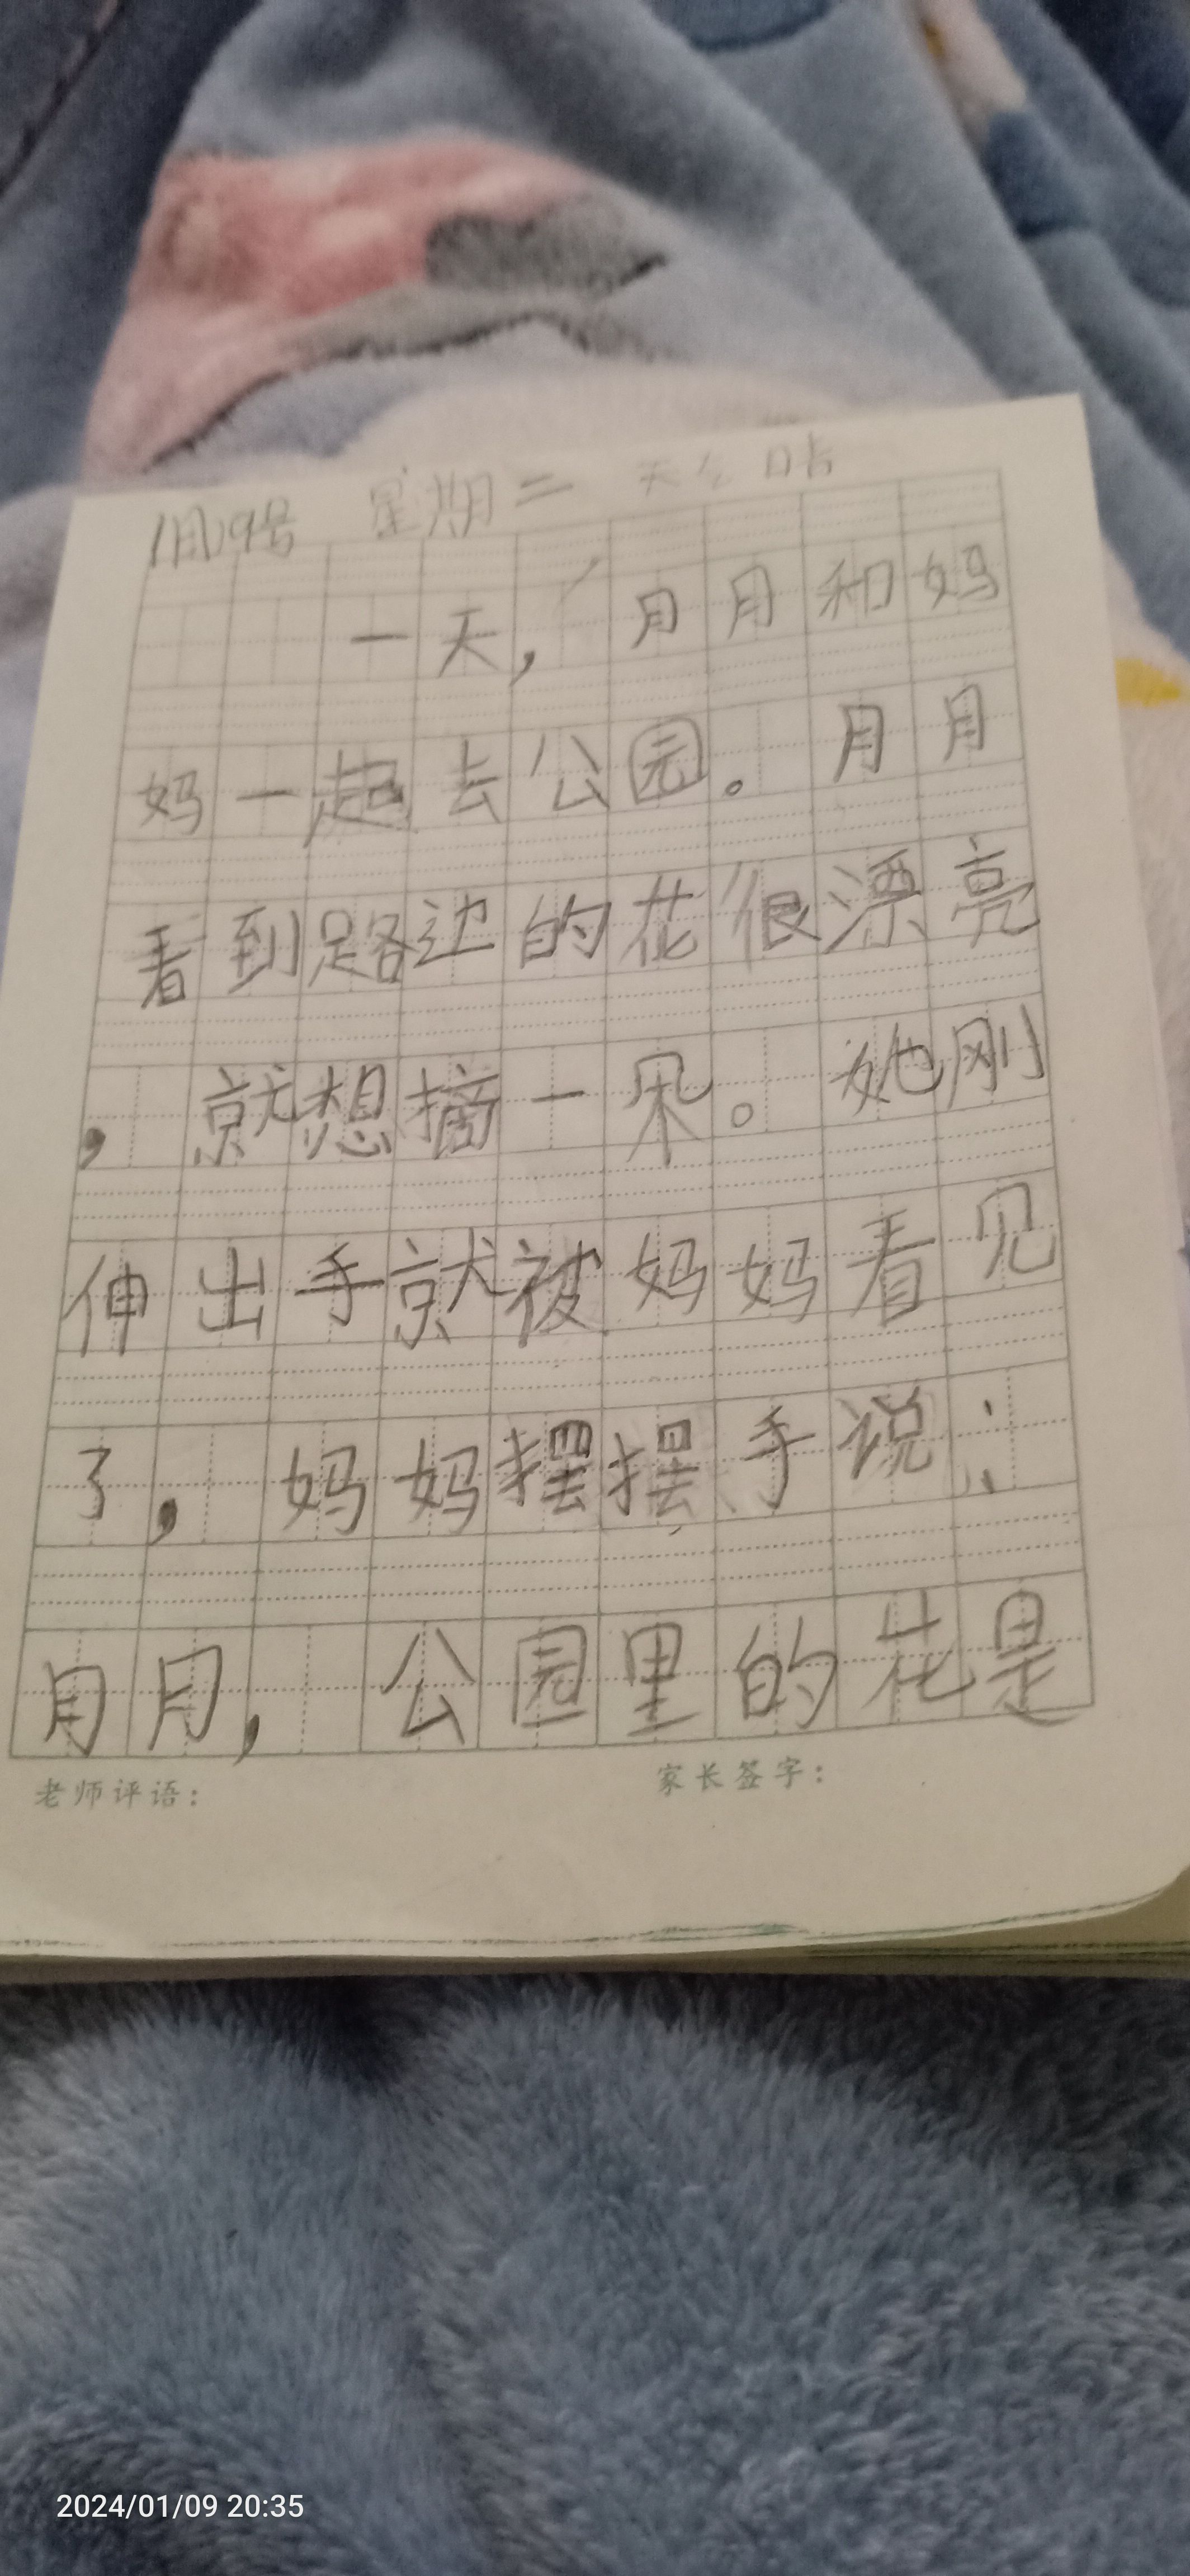 1月9号 星期二 天气
一天，月月和妈
妈一起去公园。月月
看到路边的花很漂亮
，就想摘一朵。她刚
伸出手就被妈妈看见
了，妈妈摆摆手说：
月月，公园里的花是
老师评语： 家长签字：
2024/01/09 20:35